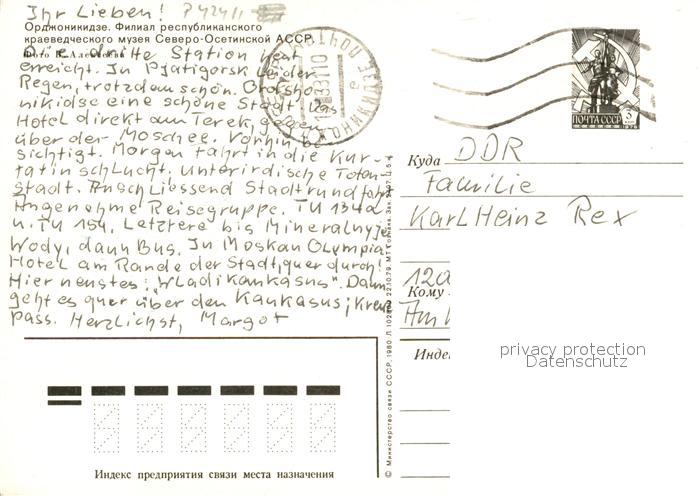 Ihr Lieben!
Орджоникидзе. Филиал республиканского
краеведческого музея Северо-Осетинской АССР.
Die dritte Station
erreicht. In Pjatigorsk leider
Regen, trotzdem schön. Ordsho-
nikidse eine schöne Stadt, das
Hotel direkt am Terek, gegen-
über der Moschee. Vorhin be-
sichtigt. Morgen Fahrt in die Kur-
tatinschlucht. Unterirdische Toten-
stadt. Anschliessend Stadtrundfahrt
Angenehme Reisegruppe. TU 134a
u. TU 154, Letztere bis Mineralnyje
Wody, dann Bus. In Moskau Olympia
Hotel am Rande der Stadt, quer durch!
Hier neustes: "Wladikaukasus". Dann
geht es quer über den Kaukasus; Kreuz
pass. Herzlichst, Margot
ПОЧТА СССР
Куда DDR
Familie
Karl Heinz Rex
Кому
Инде
privacy protection
Datenschutz
Индекс предприятия связи места назначения